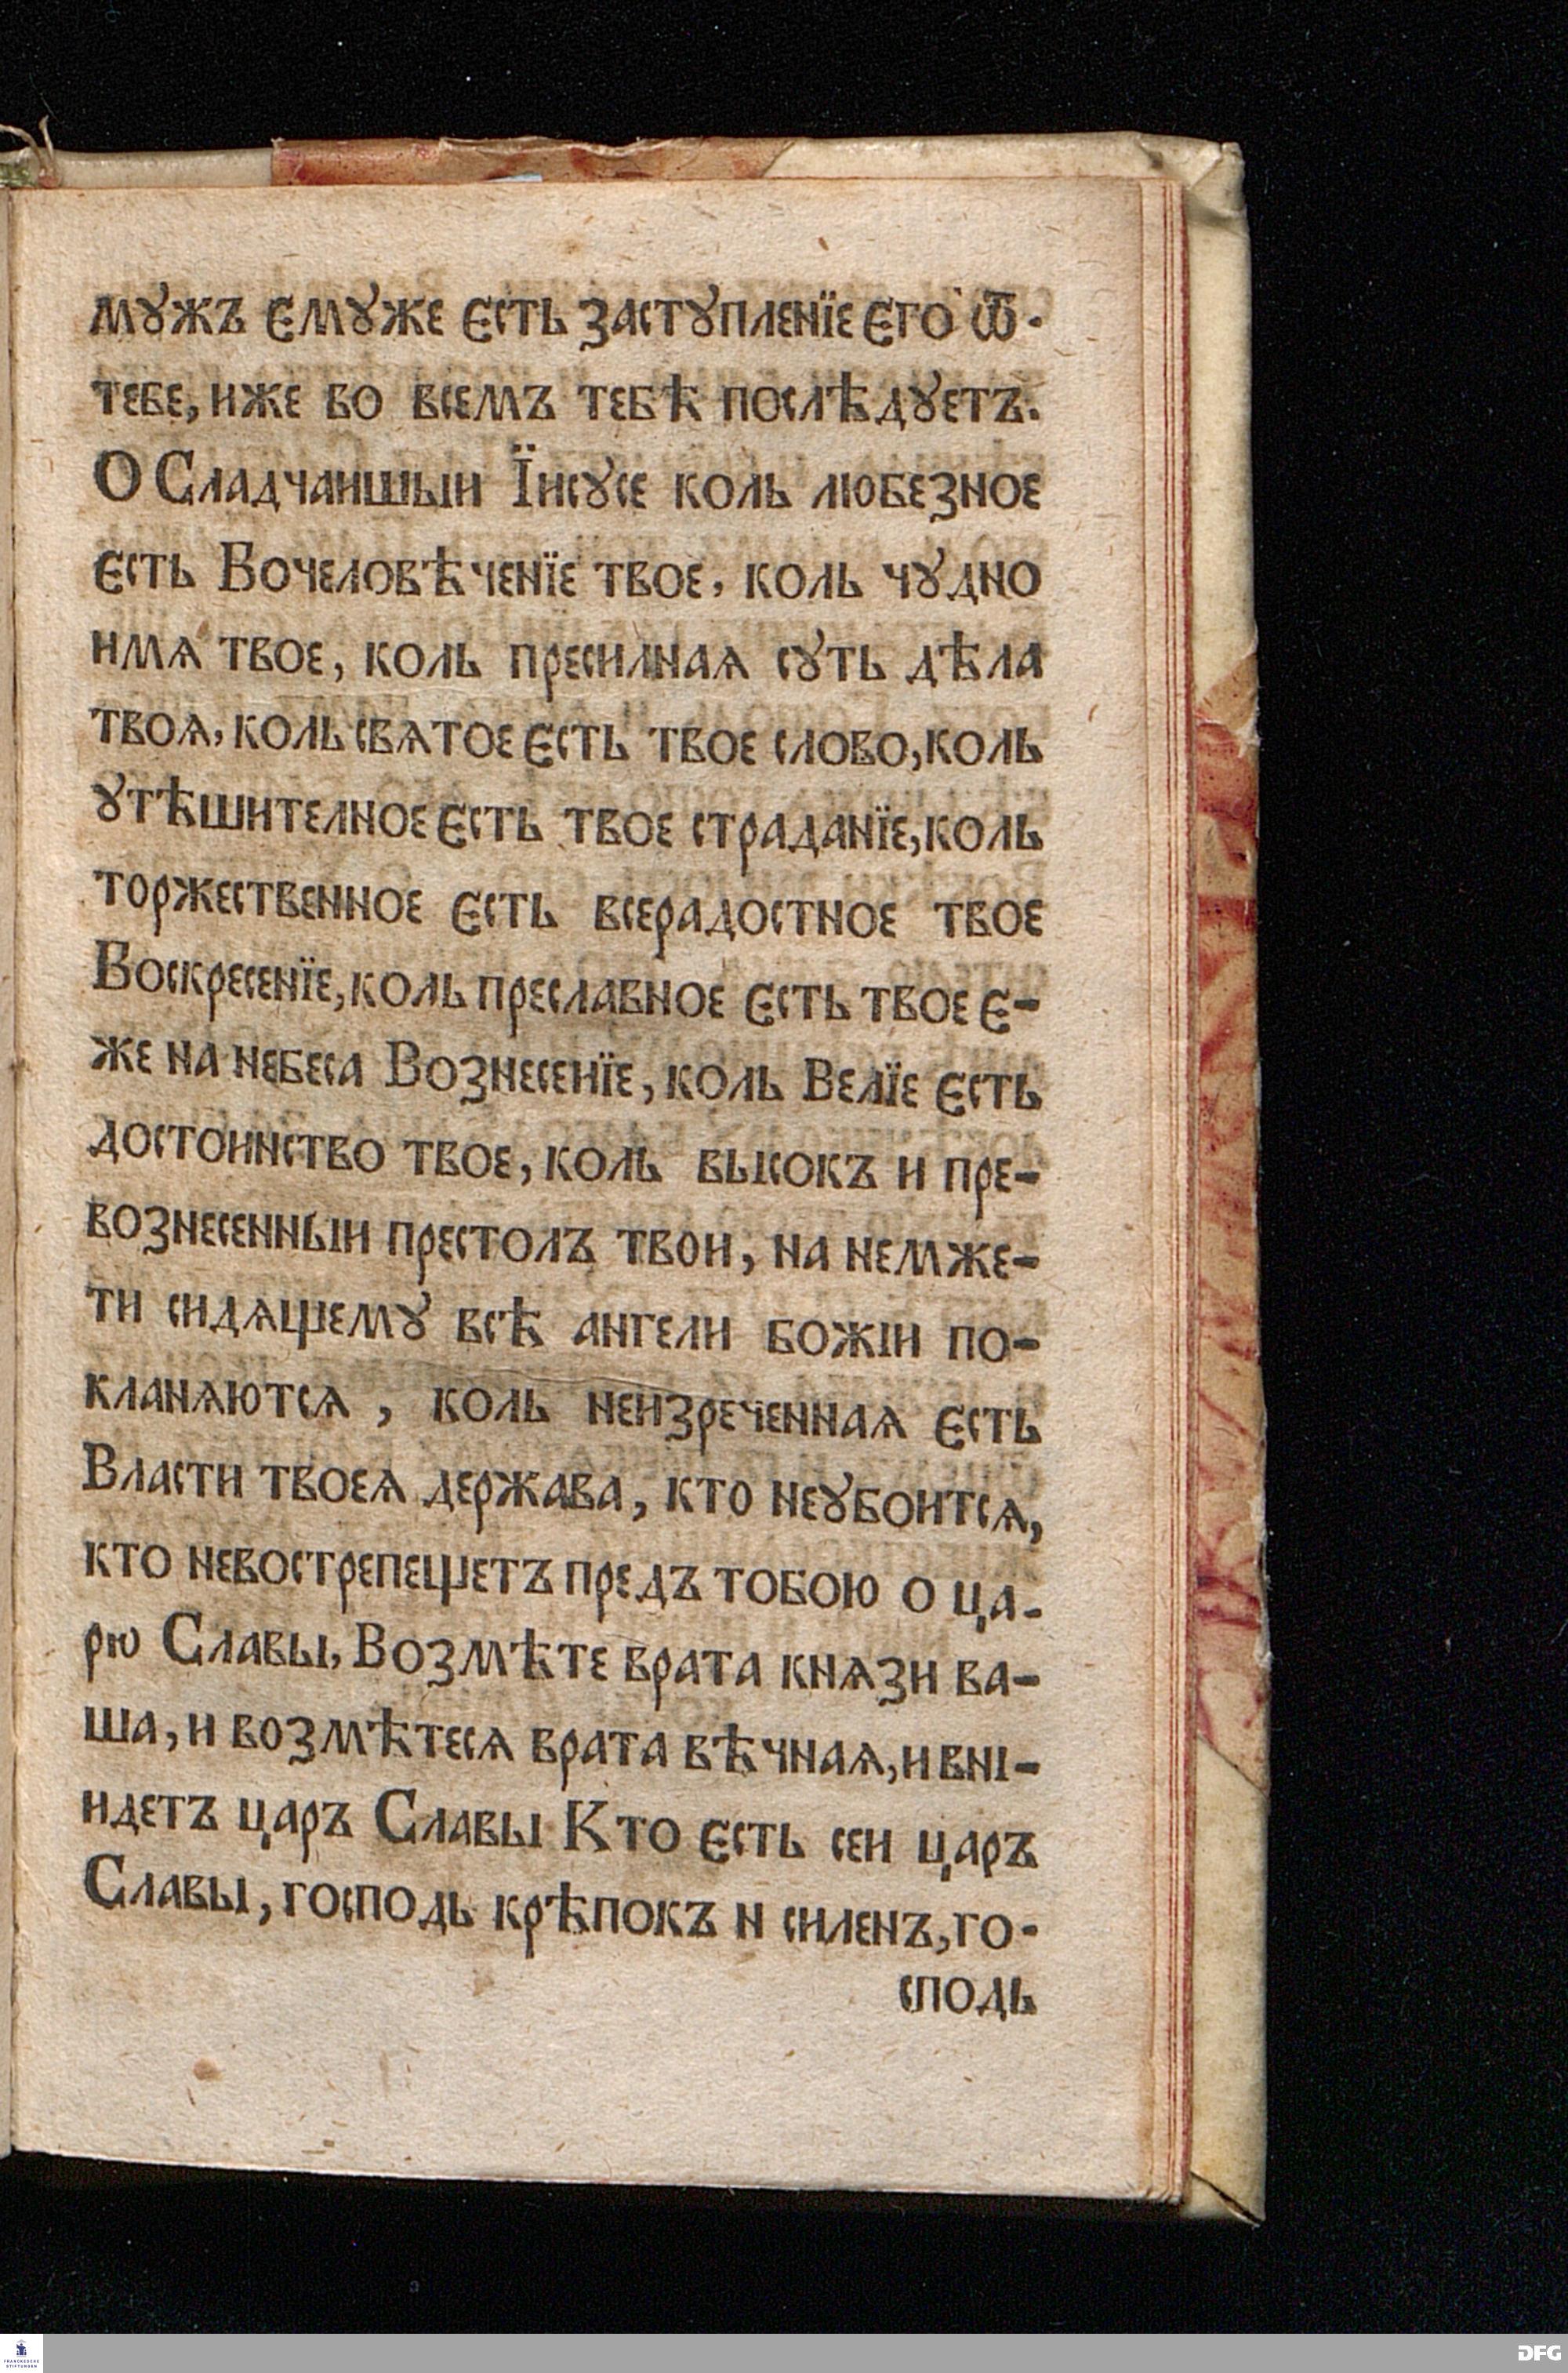 мꙋжъ Ємꙋже Єсть застꙋпленїе Єго ѿ-
тебе, иже во всемъ тебѣ послѣдꙋетъ.
О Сладчаишыи Їисꙋсе коль любезное
Єсть Вочеловѣченїе твое, коль чꙋдно
имѧ твое, коль пресилнаѧ сꙋть дѣла
твоѧ, коль свѧтое Єсть твое слово, коль
ꙋтѣшителное Єсть твое страданїе, коль
торжественное Єсть всерадостное твое
Воскресенїе, коль преславное Єсть твое Є-
же на небеса Вознесенїе, коль Велїе Єсть
достоинство твое, коль высокъ и пре-
вознесенныи престолъ твои, на немже-
ти сидѧщемꙋ всѣ ангели божіи по-
кланѧютсѧ , коль неизреченнаѧ Єсть
Власти твоеѧ держава, кто неꙋбоитсѧ,
кто невострепещетъ предъ тобою о ца-
рю Славы, Возмѣте врата кнѧзи ва-
ша, и возмѣтесѧ врата вѣчнаѧ, и вні-
идетъ царъ Славы Кто Єсть сеи царъ
Славы, господь крѣпокъ и силенъ, го-
сподь
FRANCKESCHE
STIFTUNGEN
DFG